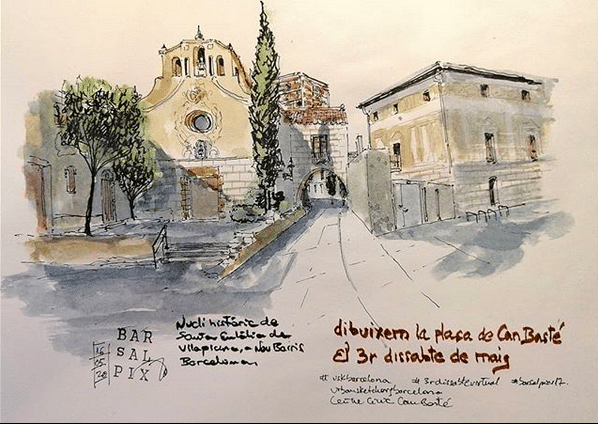 16
05
20
BAR
SAL
PIX
Nucli històric de
Santa Eulàlia de
Vilapicina, a Nou Barris
Barcelona
dibuixem la plaça de Can Basté
El 3r dissabte de maig
# uskbarcelona # 3rdissabtevirtual
urbansketchersbarcelona
Centre Cívic Can Basté